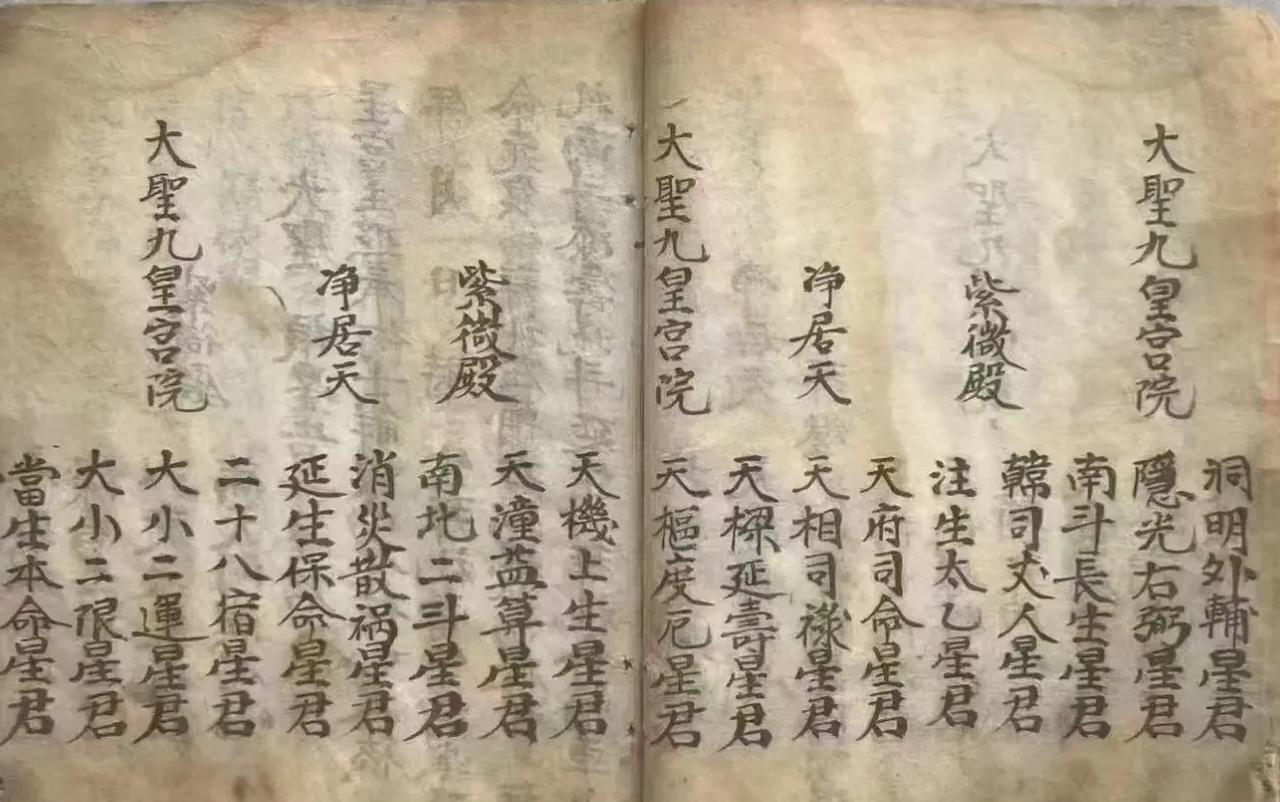 大聖九皇宮院
紫微殿
净居天
大聖九皇宮院
祠明外輔星君
隱光右弼星君
南斗長生星君
韓司丈人星君
注生太乙星君
天府司命星君
天相司祿星君
天樑延壽星君
天樞度厄星君
紫微殿
净居天
大聖九皇宮院
天機上生星君
天潼益算星君
南北二斗星君
消災散祸星君
延生保命星君
二十八宿星君
大小二運星君
大小二限星君
當生本命星君